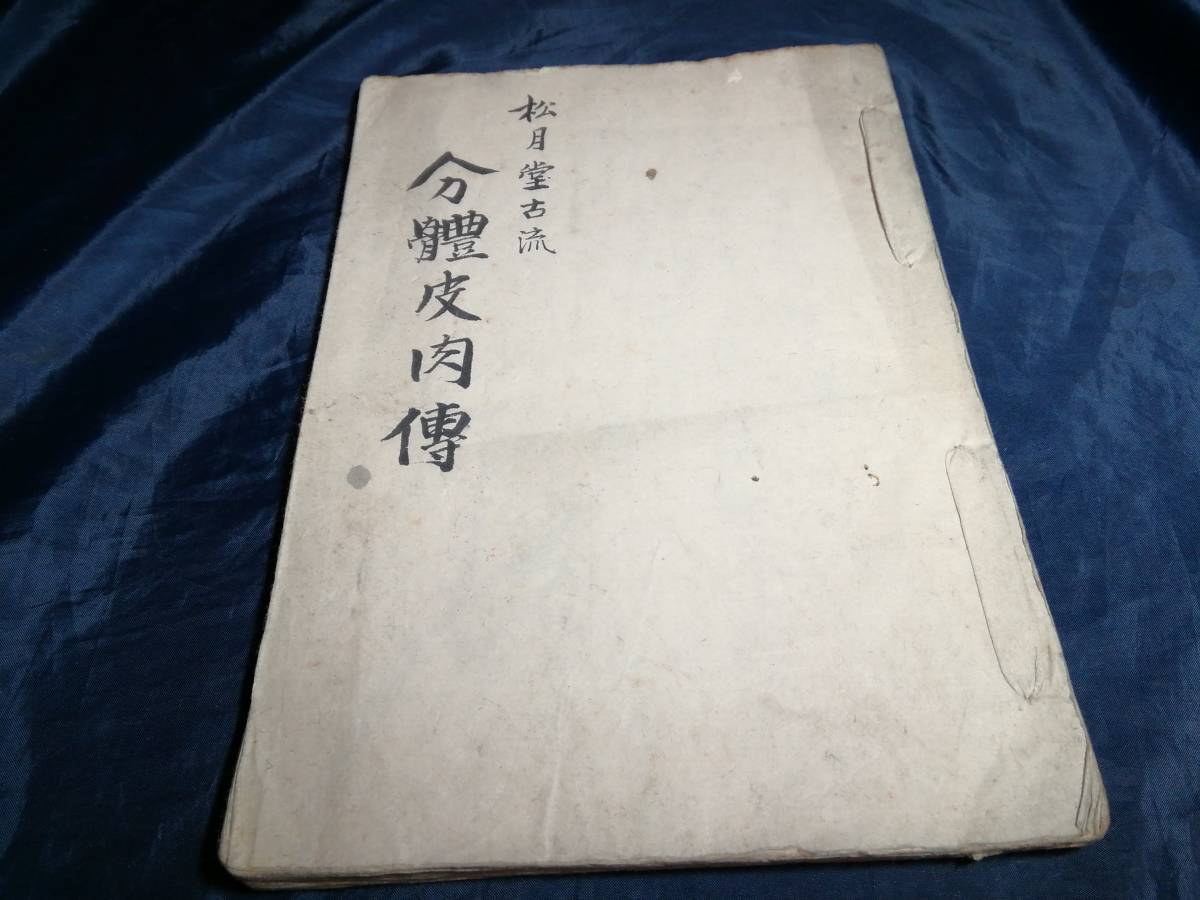 松月堂古流
分體皮肉傳